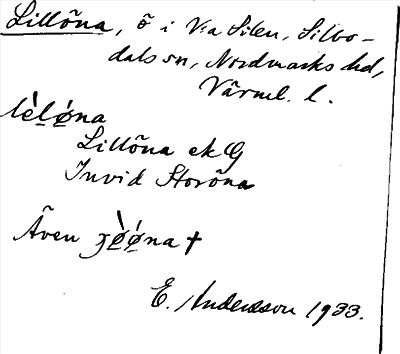 Lillõna, õ i V:a Silen, Silbo-
dals sn, Nordmarks hd,
Värml. l.
lèløna
Lillõna ek G
Invid Storõna
Även jø̀ǿna †
E. Andersson 1933.